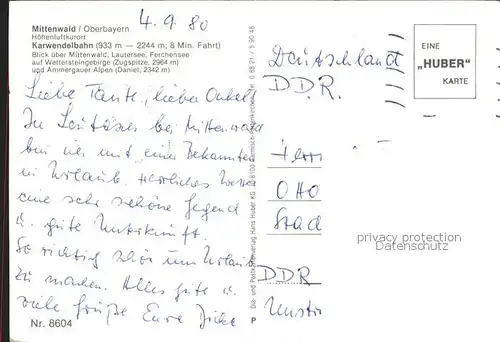 4.9.80
Mittenwald / Oberbayern
Höhenluftkurort
Karwendelbahn (933 m — 2244 m; 8 Min. Fahrt)
Blick über Mittenwald, Lautersee, Ferchensee
auf Wettersteingebirge (Zugspitze, 2964 m)
und Ammergauer Alpen (Daniel, 2342 m)
Liebe Tante, lieber Onkel
In Leutasch bei Mittenwald
bin ich mit eine Bekannten
in Urlaub. Herrliches Wetter
eine sehr schöne Gegend
u. gute Unterkunft.
So richtig schön um Urlaub
zu machen. Alles gute u.
viele Grüße Eure
Nr. 8604
Die- und Postkartenverlag Hans Huber KG
P
EINE
„HUBER"
KARTE
Deutschland
DDR.
Herrn
Otto
Stad
DDR
Unstr
privacy protection
Datenschutz